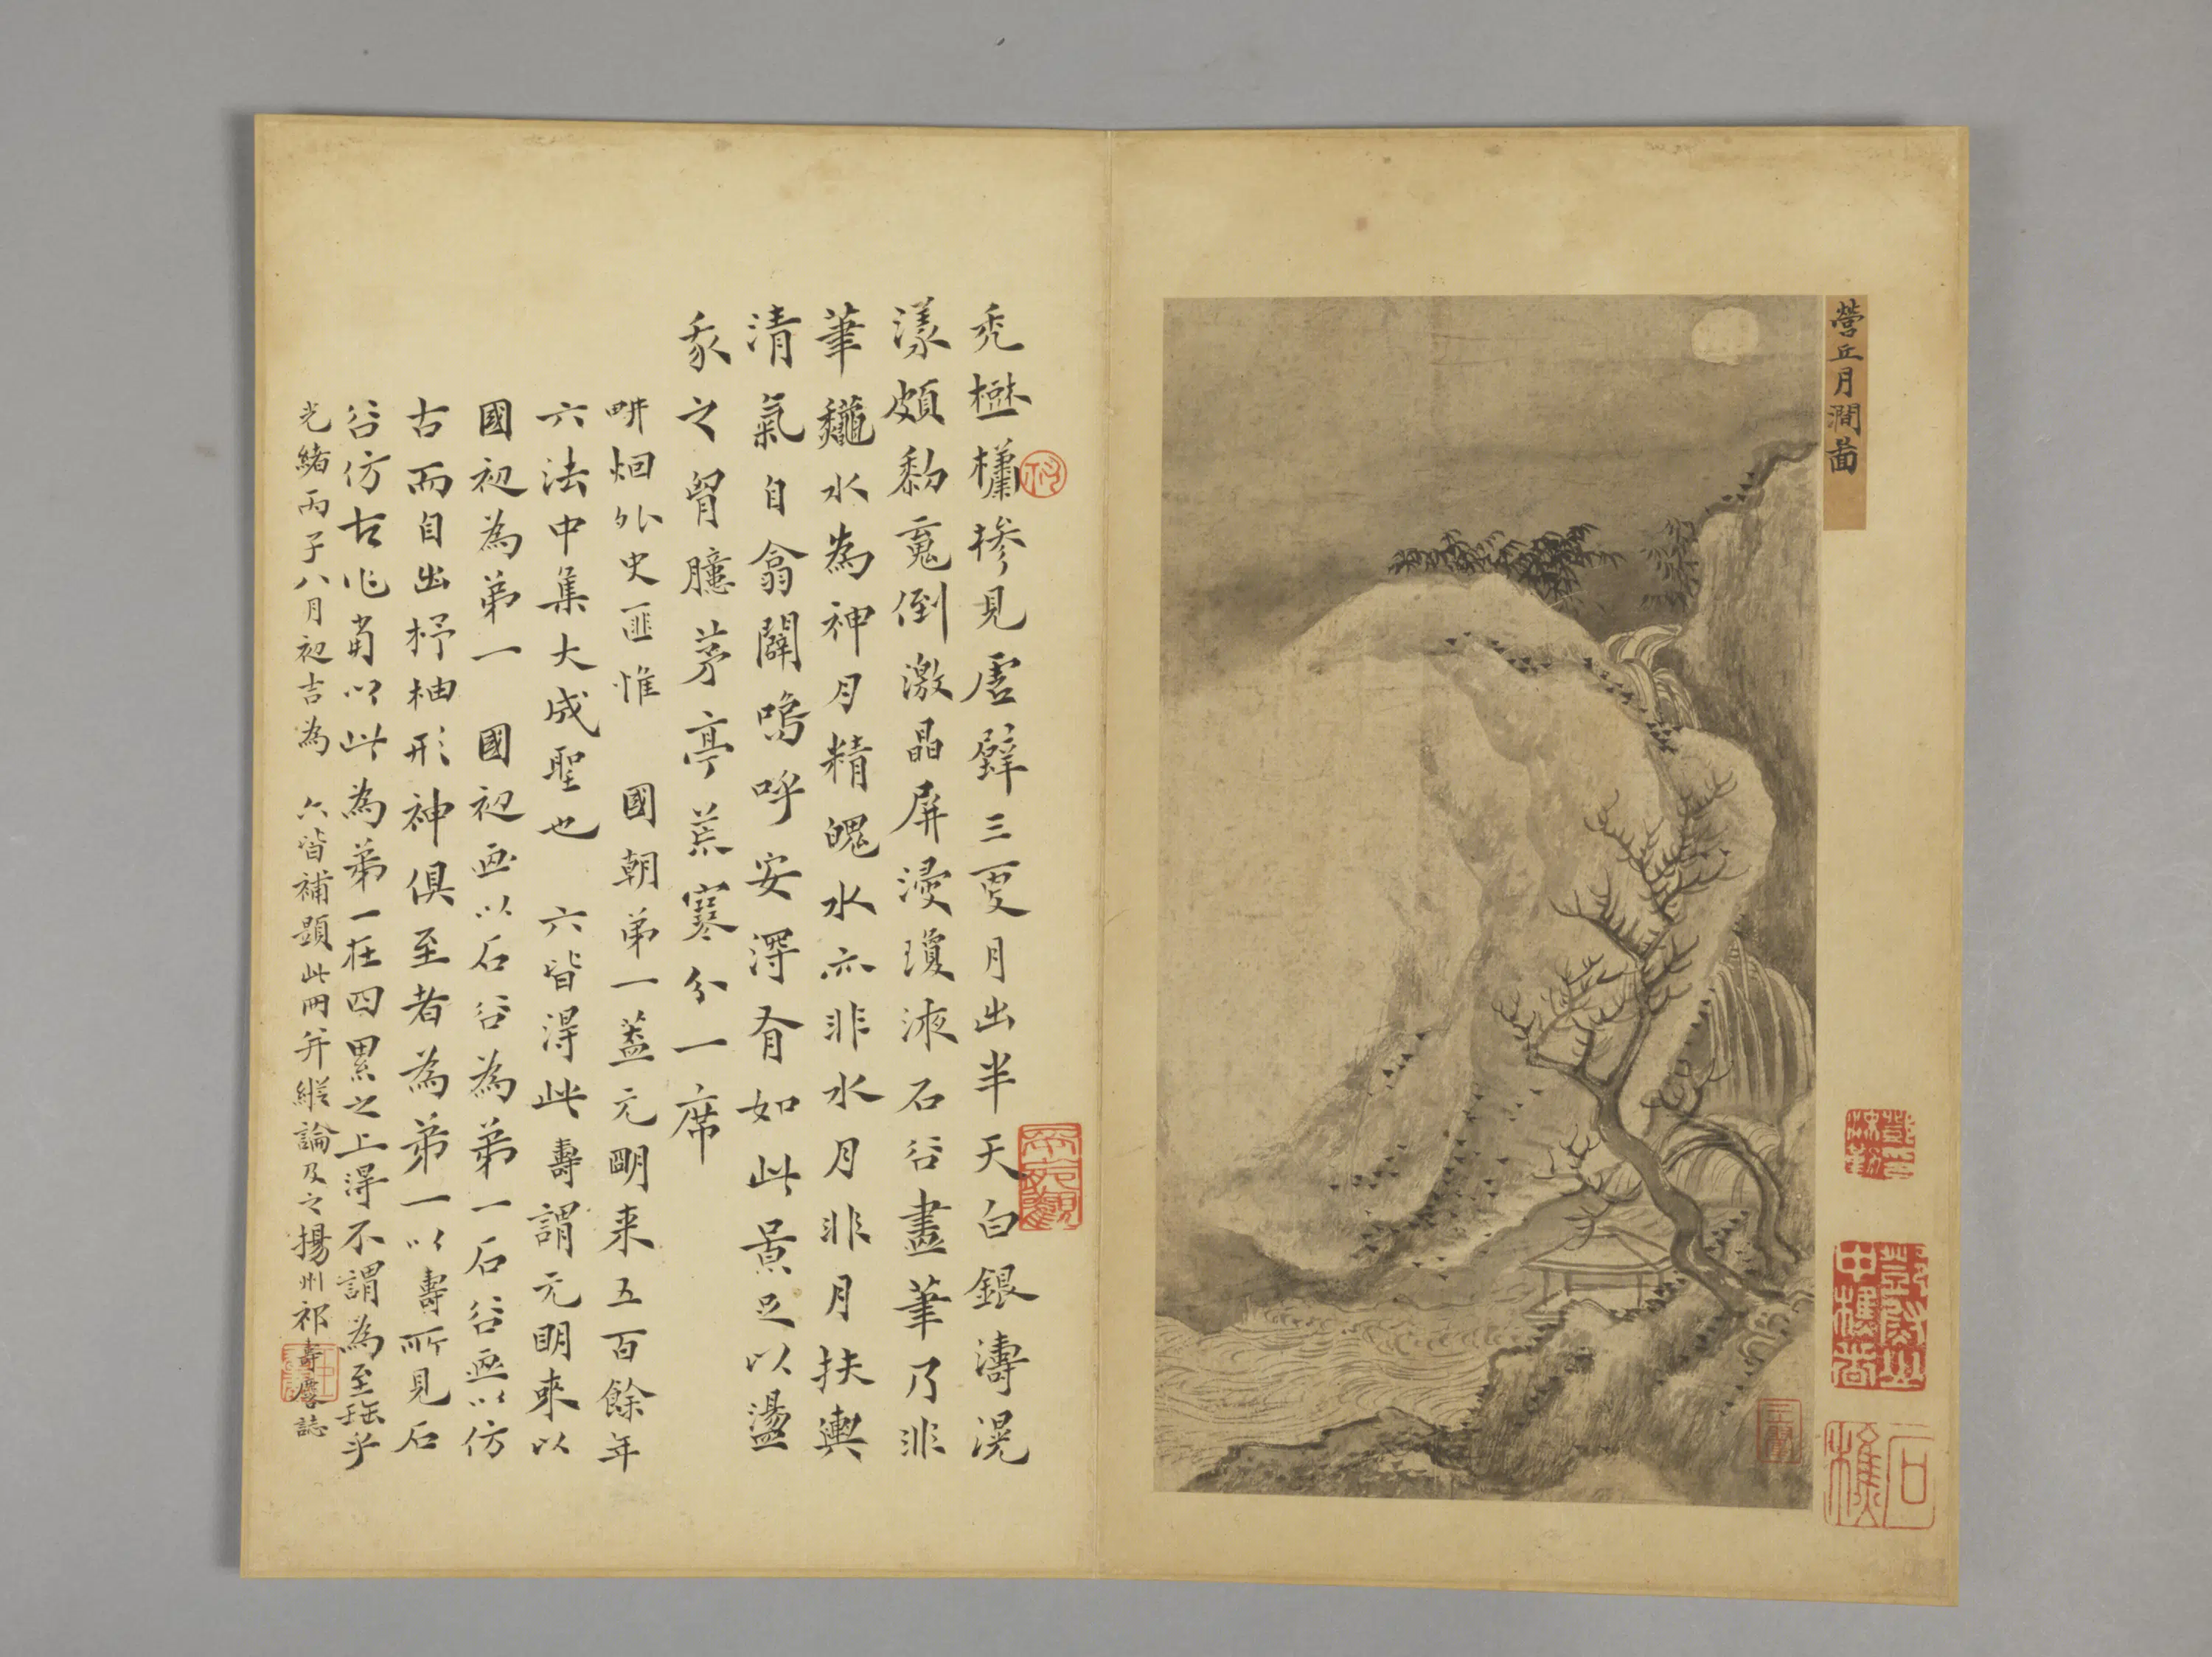 營丘月澗啚
禿檖櫹槮見虛辥三更月出半天白銀濤滉
漾頗黎寬倒激晶屏浸瓊液石谷畫筆乃非
筆水為神月精魄水亦非水月非月扶輿
清氣自翕闢嗚呼安淂有如此景足以盪
我之胷臆茅亭荒寒分一席
畊烟外史匪惟 國朝弟一葢元明来五百餘年
六法中集大成聖也 六皆淂此壽謂元明來以
國初為弟一 國初画以石谷為弟一石谷画以仿
古而自出杼柚形神俱至者為弟一以壽所見石
谷仿古作甫以此為弟一在四累之上淂不謂為至珤乎
光緒丙子八月初吉為 六皆補題此冊并縱論及之揚州祁壽麐誌
石樵